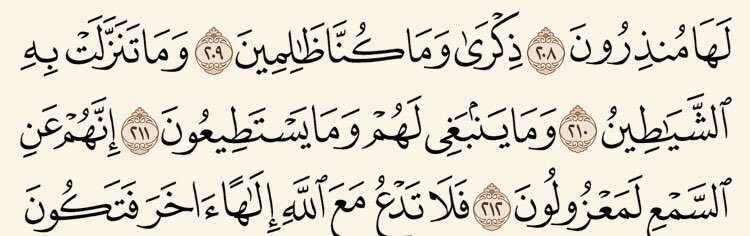 لَهَا مُنذِرُونَ ٢٠٨ ذِكْرَىٰ وَمَا كُنَّا ظَٰلِمِينَ ٢٠٩ وَمَا تَنَزَّلَتْ بِهِ
ٱلشَّيَٰطِينُ ٢١٠ وَمَا يَنۢبَغِى لَهُمْ وَمَا يَسْتَطِيعُونَ ٢١١ إِنَّهُمْ عَنِ
ٱلسَّمْعِ لَمَعْزُولُونَ ٢١٢ فَلَا تَدْعُ مَعَ ٱللَّهِ إِلَٰهًا ءَاخَرَ فَتَكُونَ